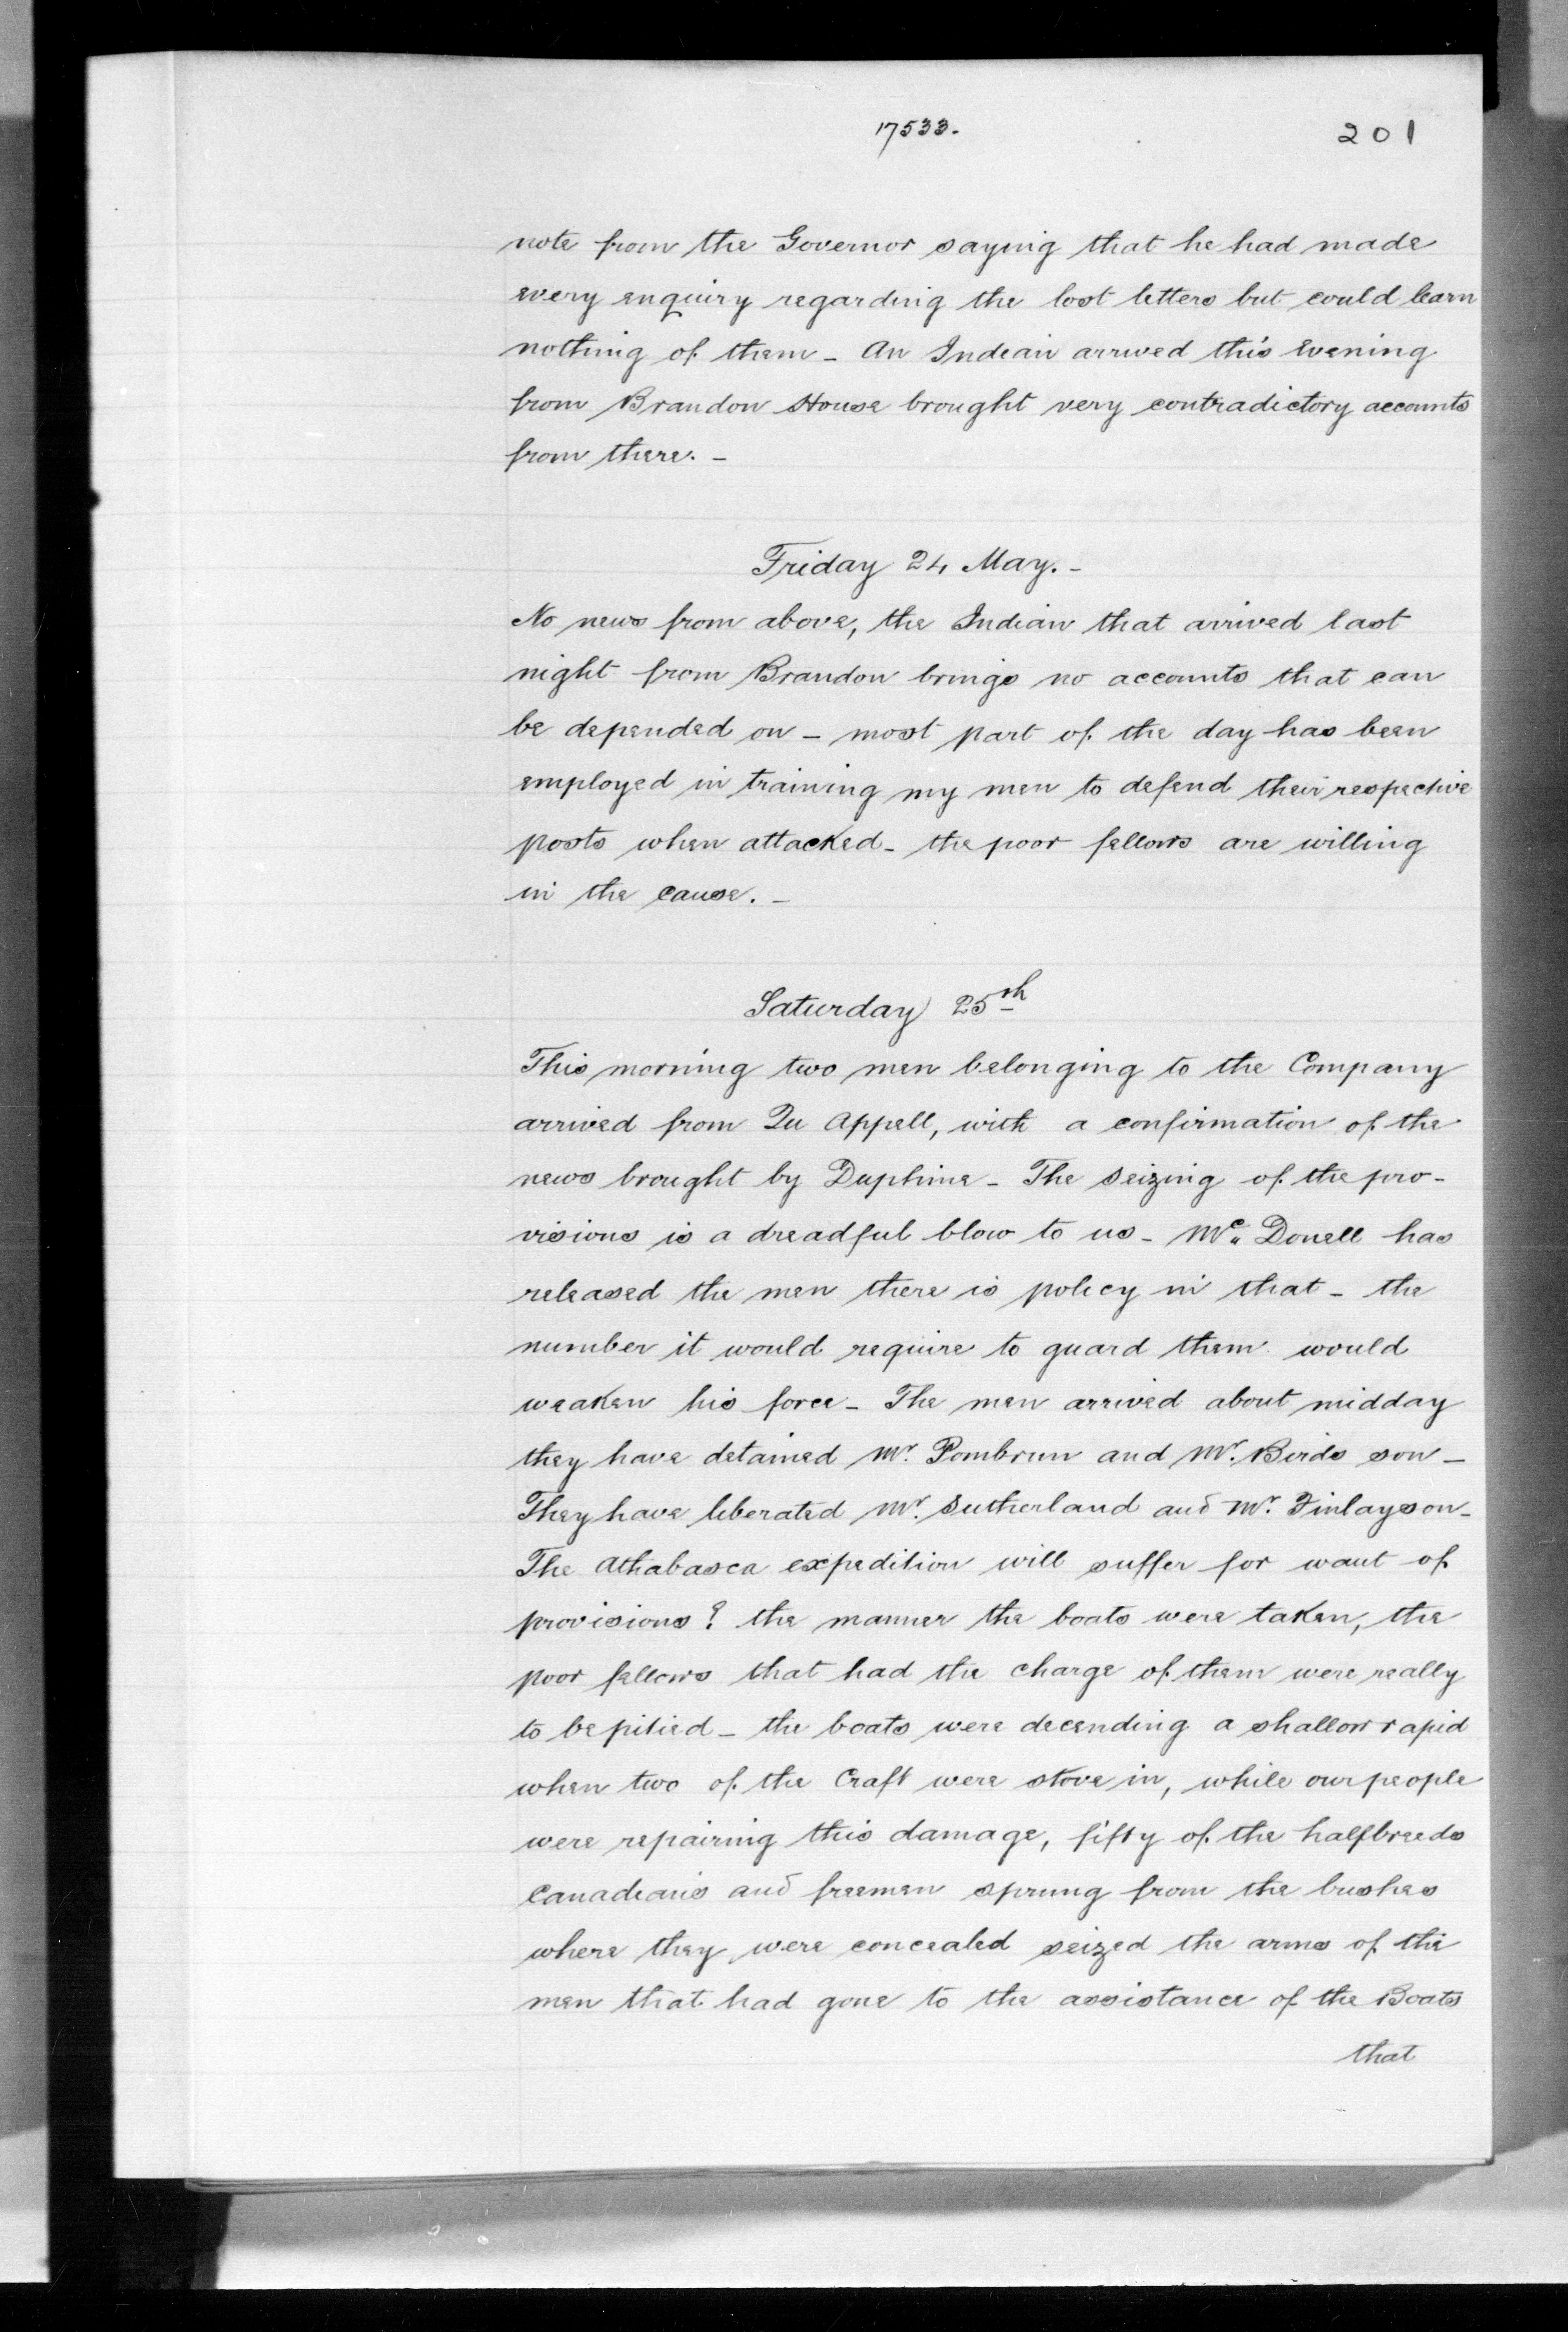 17533.
201
note from the Governor saying that he had made
every enquiry regarding the lost letters but could learn
nothing of them - An Indian arrived this Evening
from Brandon House brought very contradictory accounts
from there. -
Friday 24 May. -
No news from above, the Indian that arrived last
night from Brandon brings no accounts that can
be depended on - most part of the day has been
employed in training my men to defend their respective
posts when attacked - the poor fellows are willing
in the cause. -
Saturday 25th
This morning two men belonging to the Company
arrived from Qu Appell, with a confirmation of the
news brought by Duphine - The seizing of the pro-
visions is a dreadful blow to us - Mc Donell has
released the men there is policy in that - the
number it would require to guard them would
weaken his force - The men arrived about midday
they have detained Mr. Pombrun and Mr. Birds son -
They have liberated Mr. Sutherland and Mr. Finlayson -
The Athabasca expedition will suffer for want of
provisions? the manner the boats were taken, the
poor fellows that had the charge of them were really
to be pitied - the boats were decending a shallow rapid
when two of the Craft were stove in, while our people
were repairing this damage, fifty of the halfbreeds
Canadians and freemen sprung from the bushes
where they were concealed seized the arms of the
men that had gone to the assistance of the Boats
that